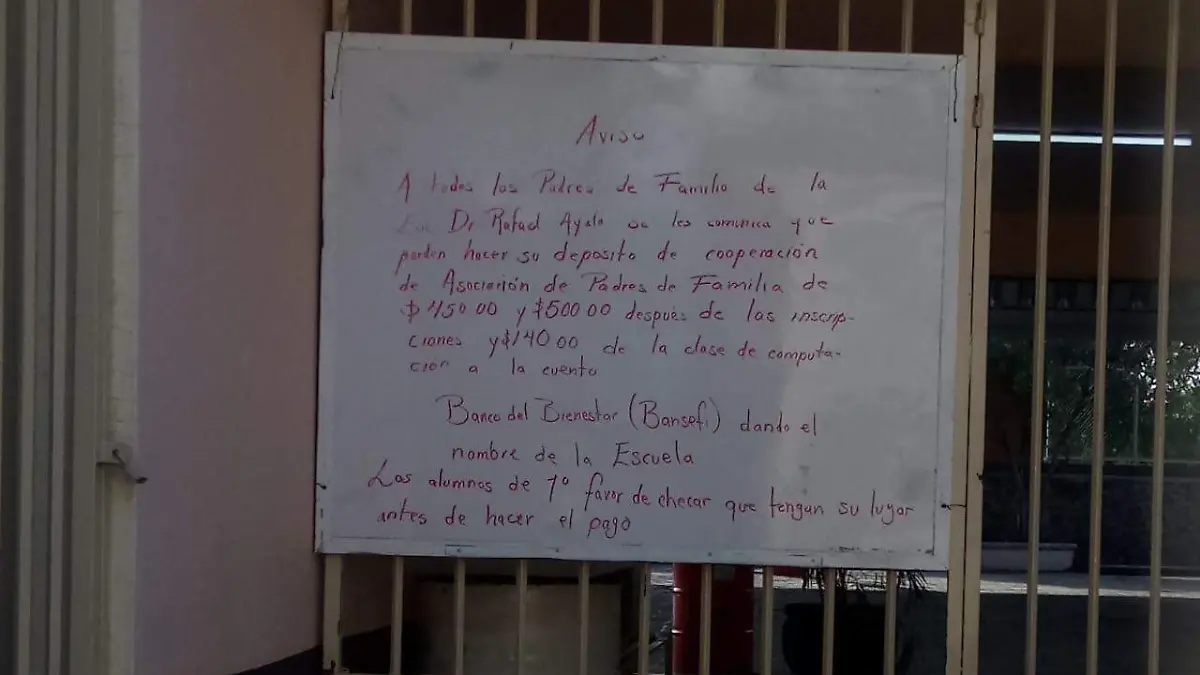 Aviso
A todos los Padres de Familia de la
Dr Rafael Ayala se les comunica que
pueden hacer su deposito de cooperación
de Asociación de Padres de Familia de
$450 00 y $500 00 después de las inscrip-
ciones y $140 00 de la clase de computa-
ción a la cuenta
Banco del Bienestar (Bansefi) dando el
nombre de la Escuela
Los alumnos de 1° favor de checar que tengan su lugar
antes de hacer el pago